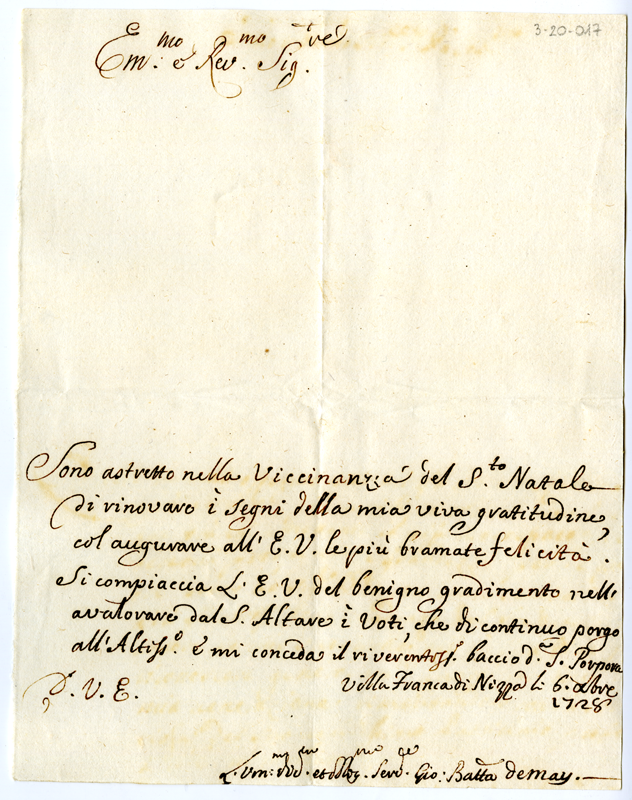 3-20-017
Em.mo e Rev.mo Sig.re
Sono astretto nella Viccinanza del S.to Natale
di rinovare i segni della mia viva gratitudine,
col augurare all' E. V. le più bramate felicità.
Si compiaccia L' E. V. del benigno gradimento nell'
avalorare dal S. Altare i Voti, che di continuo porgo
all' Altiss.o e mi conceda il riverentiss.o baccio d. S. Porpora
D. V. E.
Villa Franca di Nizza li 6. xbre
1728
Serv.re Gio: Batta demay.